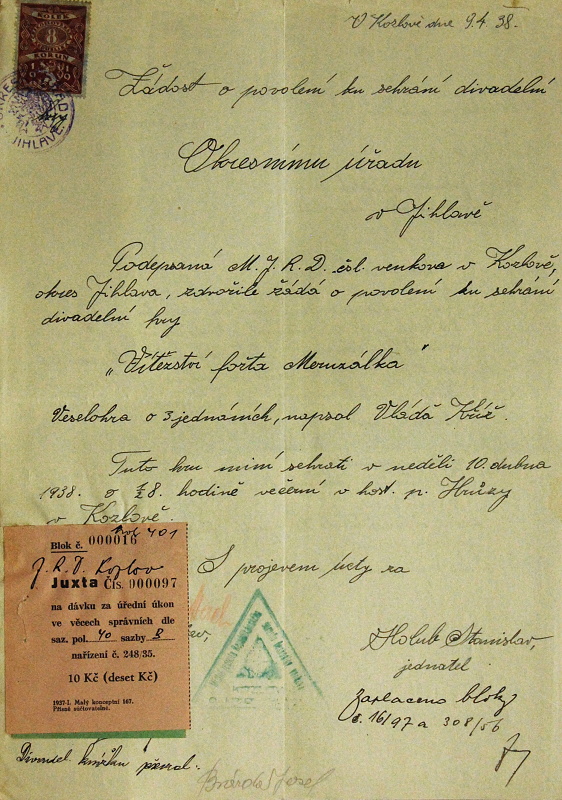 V Kozlově dne 9.4.38.
KOLEK
8
KORUN
JIHLAVĚ
Žádost o povolení ku sehrání divadelní
Okresnímu úřadu
v Jihlavě
Podepsaná M. J. R. D. čsl. venkova v Kozlově,
okres Jihlava, zdvořile žádá o povolení ku sehrání
divadelní hry
"Vítězství fořta Meruzálka"
Veselohra o 3 jednáních, napsal Vláďa
Tuto hru míní sehráti v neděli 10. dubna
1938. o ½8. hodině večerní v host. p. Hrůzy
v Kozlově.
S projevem úcty za
Holub Stanislav,
jednatel
Zaplaceno bloky
č. 16/97 a 308/56
401
Blok č. 000016
J. R. D. Kozlov
Juxta Čís. 000097
na dávku za úřední úkon
ve věcech správních dle
saz. pol. 40 sazby B
nařízení č. 248/35.
10 Kč (deset Kč)
1937-I. Malý konceptní 167.
Přísně súčtovatelné.
knížku převzal:
Josef